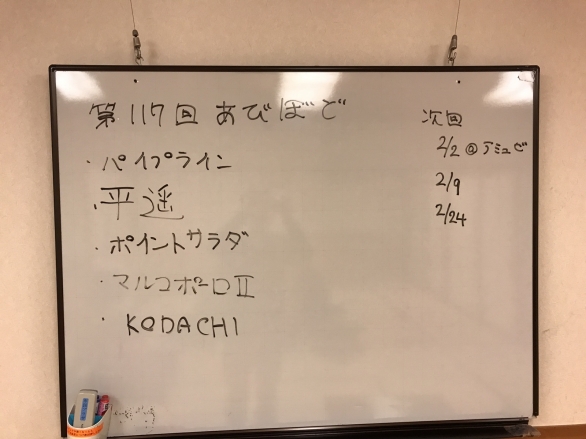 第117回 あびぼど
・パイプライン
・平遥
・ポイントサラダ
・マルコポーロⅡ
・KODACHI
次回
2/2 @アミュゼ
2/9
2/24